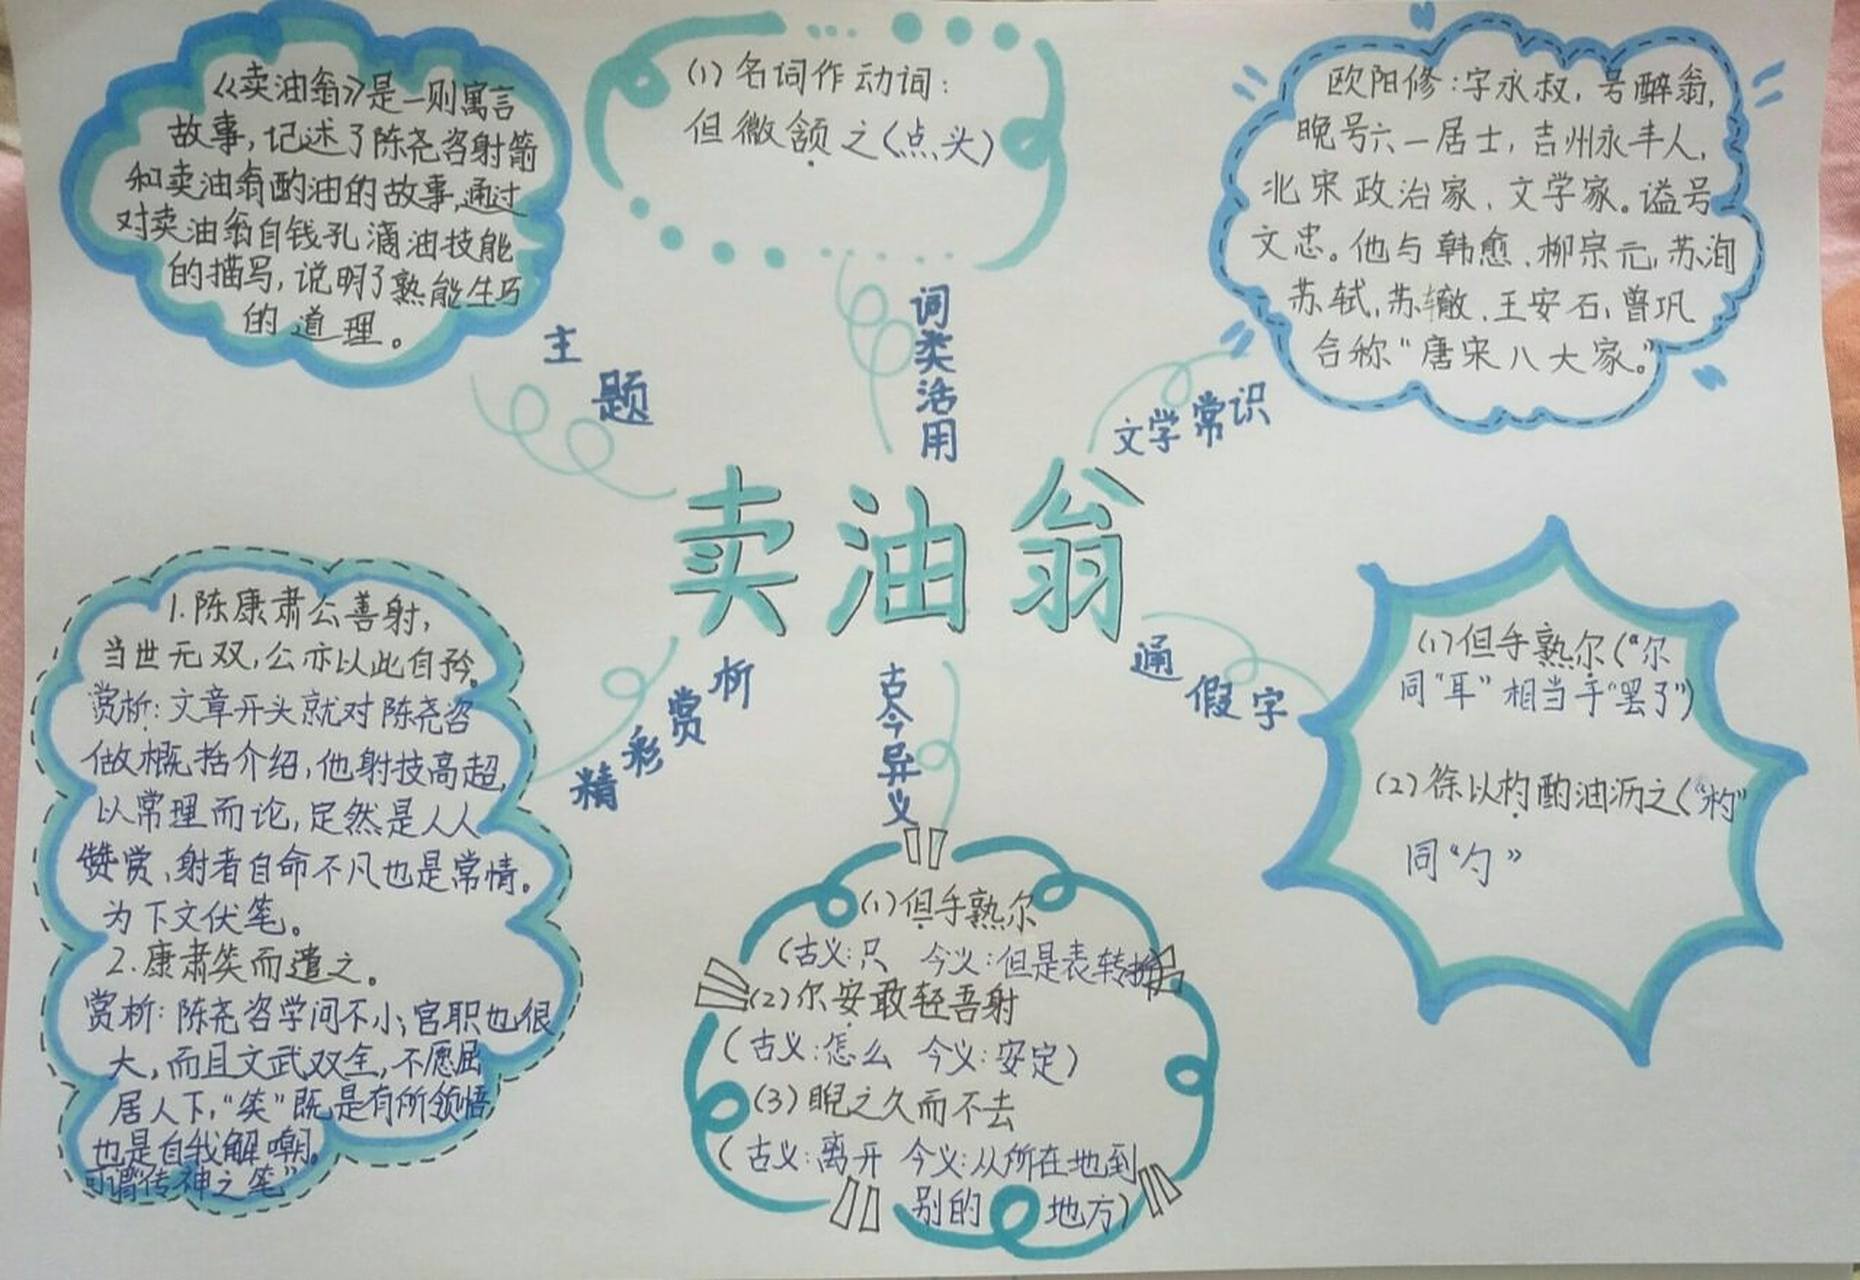 《卖油翁》是一则寓言
故事,记述了陈尧咨射箭
和卖油翁酌油的故事,通过
对卖油翁自钱孔滴油技能
的描写,说明了熟能生巧
的道理。
主题
(1)名词作动词:
但微颔之(点头)
词类活用
欧阳修:字永叔,号醉翁,
晚号六一居士,吉州永丰人,
北宋政治家、文学家。谥号
文忠。他与韩愈、柳宗元,苏洵
苏轼,苏辙、王安石,曾巩
合称“唐宋八大家。”
文学常识
卖油翁
1.陈康肃公善射,
当世无双,公亦以此自矜。
赏析:文章开头就对陈尧咨
做概括介绍,他射技高超,
以常理而论,定然是人人
赞赏、射者自命不凡也是常情。
为下文伏笔。
2.康肃笑而遣之。
赏析:陈尧咨学问不小;官职也很
大,而且文武双全,不愿屈
居人下,“笑”既是有所领悟,
也是自我解嘲。
可谓“传神之笔”
精彩赏析
古今异义
(1)但手熟尔
(古义:只 今义:但是表转折
(2)尔安敢轻吾射
(古义:怎么 今义:安定)
(3)睨之久而不去
(古义:离开 今义:从所在地到
别的地方)
通假字
(1)但手熟尔(“尔
同“耳”相当于“罢了”)
(2)徐以杓酌油沥之(“杓”
同“勺”